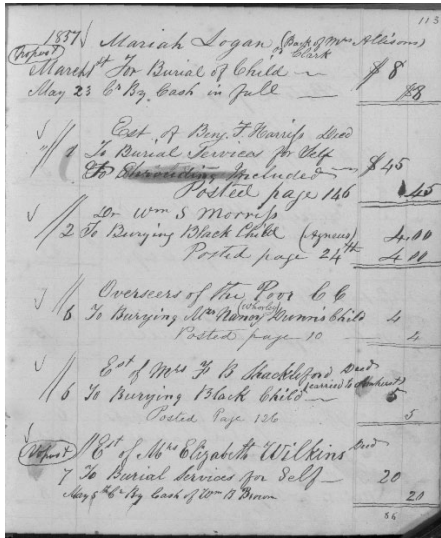 113
1857 Mariah Logan (Back of Mrs Allisons)
or Clark
March 1st For Burial of Child — $8
May 23 Cr By Cash in full — $8
Est. of Benj. F. Harriss Decd
" // 1 To Burial Services for Self
To Shrouding Included — $45
Posted page 146 45
Dr Wm S Morriss
// 2 To Burying Black Child (Agness) 4.00
Posted page 24th 4.00
Overseers of the Poor C C
(Wheeler)
// 6 To Burying Mrs Nancy Dunns Child 4
Posted page 10 — 4
Est of Mrs F B Shackleford Decd
(carried to Amherst)
// 6 To Burying Black Child — 5
Posted Page 126 5
// Est of Mrs Elizabeth Wilkins Decd
7 To Burial Services for Self — 20
May 5th Cr By Cash of Wm B Brown 20
86